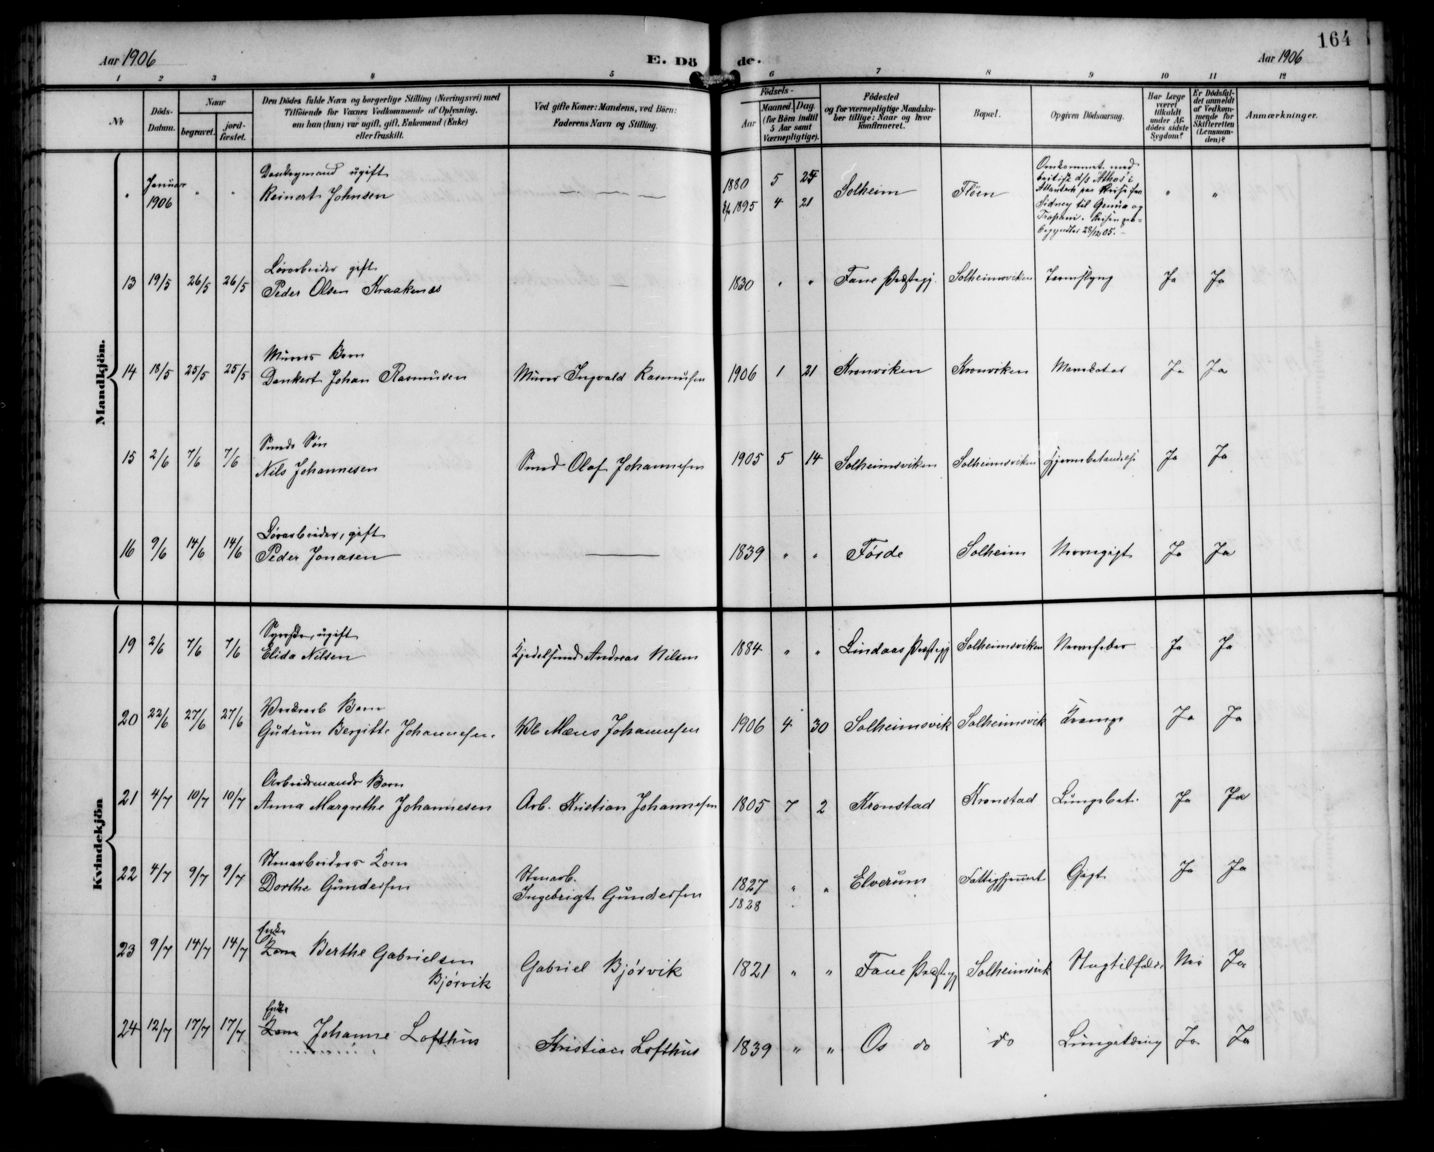 Aar 1906
E. Dö
de.
Aar 1906
164
1 2 3 4 5 6 7 8 9 10 11 12
Nr
Döds-Datum.
Naar
begravet.
jord-fæstet.
Den Dödes fulde Navn og borgerlige Stilling (Næringsvei) med
Tilföiende for Voxnes Vedkommende af Oplysning,
om han (hun) var ugift, gift, Enkemand (Enke)
eller fraskilt.
Ved gifte Koner: Mandens, ved Börn:
Faderens Navn og Stilling.
Födsels-
Aar
Maaned. Dag.
(for Börn indtil
5 Aar samt
Værnepligtige).
Födested
og for værnepligtige Mandska-
ber tillige: Naar og hvor
konfirmeret.
Bopæl.
Opgiven Dödsaarsag.
Har Læge
været
tilkaldt
under Af-
dödes sidste
Sygdom?
Er Dödsfal-
det anmeldt
af Vedkom-
mende for
Skifteretten
(Lensman-
den)?
Anmærkninger.
Mandkjön.
" Januar 1906 " " ugift
Reinert Johnsen — — 1880 5 25 Solheim Fløen " "
1895 4 21
Omkommet med
Sidney til Genua og
Trapani. Reisen på-
begyndtes 23/12 05. —
13 19/5 26/5 26/5 Løsarbeider gift
Peder Olsen Kraakenes — — 1830 " " Fane Præstegj. Solheimsviken Ja Ja
14 18/5 25/5 25/5 Murer Barn
Dankert Johan Rasmusen Murer Ingvald Rasmusen 1906 1 21 Kronviken Kronviken Ja Ja
15 2/6 7/6 7/6 Smeds Søn
Nils Johannesen Smed Olaf Johannesen 1905 5 14 Solheimsviken Solheimsviken Hjernebetændelse Ja Ja
16 9/6 14/6 14/6 Løsarbeider, gift
Peder Jonasen — — 1839 " " Førde Solheim Ja Ja
Kvindekjön
19 2/6 7/6 7/6 Syerske, ugift
Elida Nilsen Kjedelsmed Andreas Nilsen 1884 " " Lindaas Præstegj Solheimsviken Nervefeber Ja Ja
20 22/6 27/6 27/6 Barn
Gudrun Bergitte Johannesen. Mæns Johannesen 1906 4 30 Solheimsvik Solheimsvik Krampe Ja Ja
21 4/7 10/7 10/7 Arbeidsmands Barn
Anna Margrethe Johannesen Arb. Kristian Johannesen 1805 7 2 Kronstad Kronstad Lungebet. Ja Ja
22 4/7 9/7 9/7 Stenarbeiders Kone
Dorthe Gundersen Stenarb.
Ingebrigt Gundersen 1827 " " Elverum Fattighjemmet Gigt Ja Ja
1828
23 9/7 14/7 14/7 Enke
Kone Berthe Gabrielsen
Bjørvik Gabriel Bjørvik 1821 " " Fane Præstegj Solheimsvik Slagtilfælde Nei Ja
24 12/7 17/7 17/7 Enke
Kone Johanne Lofthus Kristian Lofthus 1839 " " Os do do Lungetæring Ja Ja